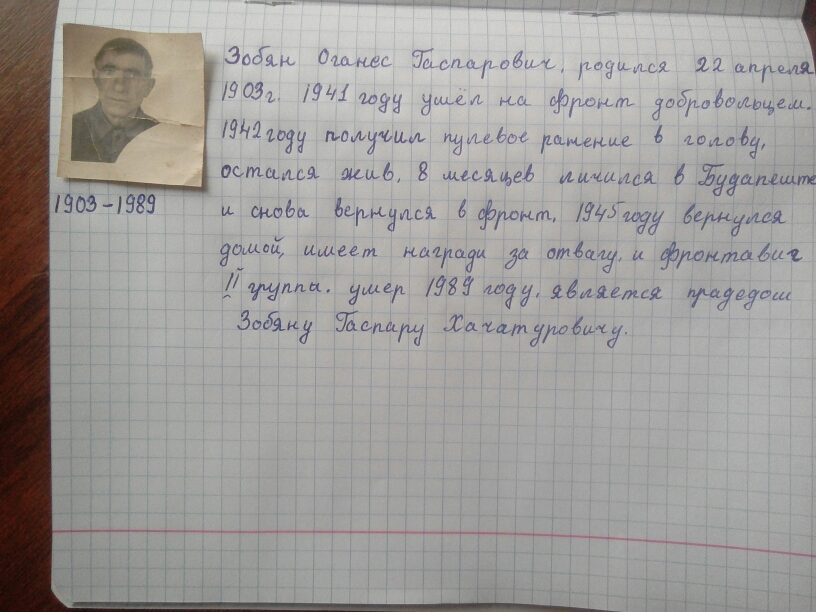 Зобян Оганес Гаспарович, родился 22 апреля
1903г. 1941 году ушёл на фронт добровольцем.
1942 году получил пулевое ранение в голову,
остался жив, 8 месяцев личился в Будапеште
1903-1989
и снова вернулся в фронт, 1945 году вернулся
домой, имеет награди за отвагу, и фронтавиг
II группа. умер 1989 году. является прадедом
Зобяну Гаспару Хачатуровичу.